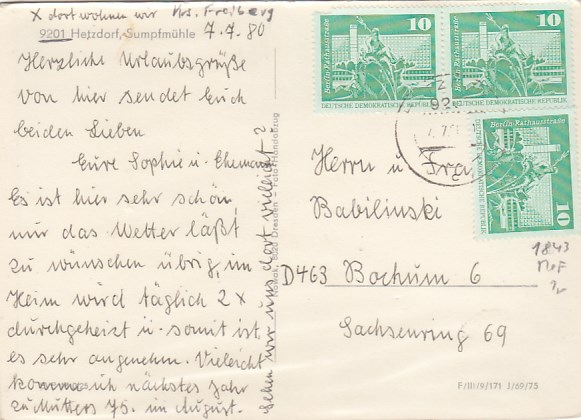 x dort wohnen wir Krs. Freiberg
9201 Hetzdorf, Sumpfmühle 7.7.80
Herzliche Urlaubsgrüße
von hier sendet Euch
beiden Lieben
Eure Sophie u. Ehemann
Es ist hier sehr schön,
nur das Wetter läßt
zu wünschen übrig, im
Heim wird täglich 2x
durchgeheizt u. somit ist
es sehr angenehm. Vielleicht
komme ich nächstes Jahr
zu Mutters 75. im August.
Sehen wir uns dort vielleicht?
Dresden Foto-Handabzug
10
Berlin-Rathausstraße
DEUTSCHE DEMOKRATISCHE REPUBLIK
10
Berlin-Rathausstraße
DEUTSCHE DEMOKRATISCHE REPUBLIK
10
Berlin-Rathausstraße
DEUTSCHE DEMOKRATISCHE REPUBLIK
Herrn u. Frau
Babilinski
D463 Bochum 6
Sachsenring 69
1843
MeF
F/III/9/171 J/69/75